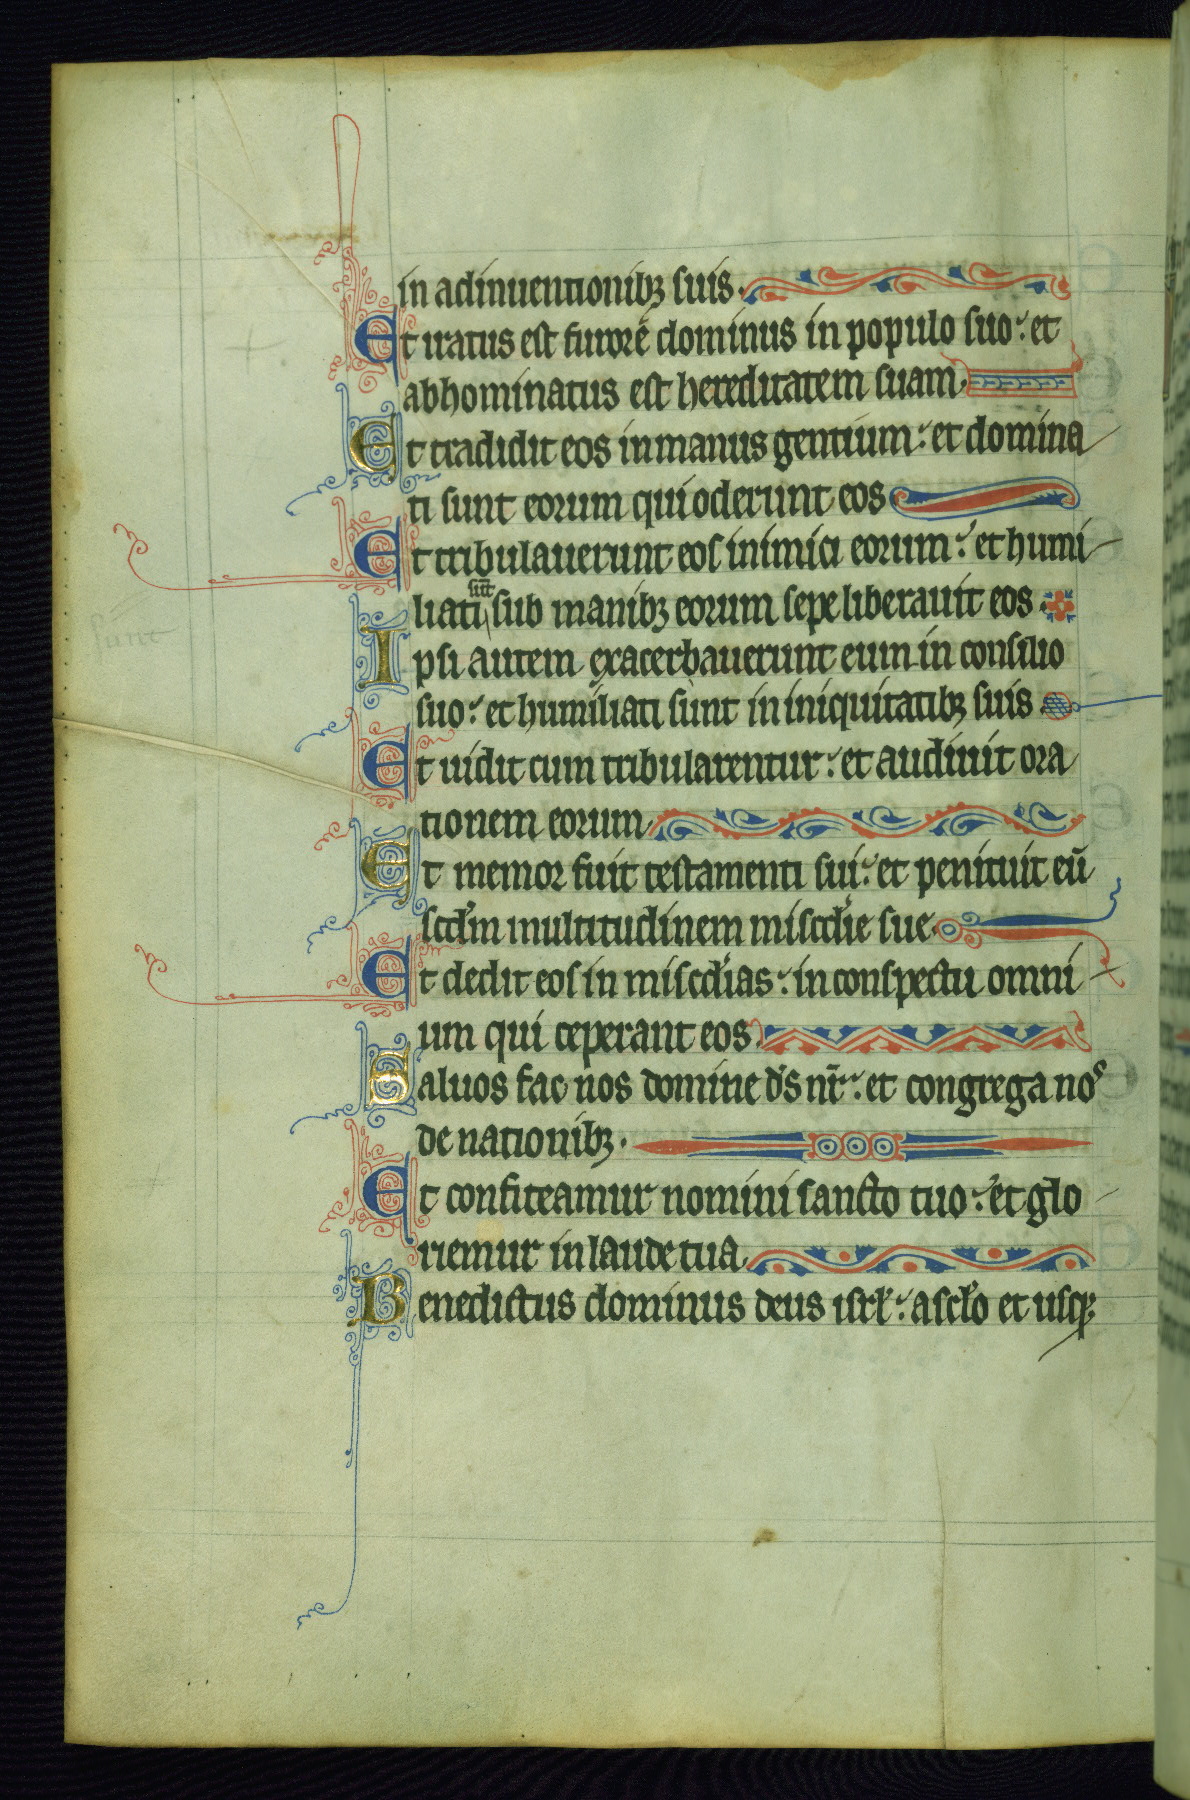 in adinuentionibꝫ suis.
Et iratus est furore dominus in populo suo: et
abhominatus est hereditatem suam.
Et tradidit eos in manus gentium: et domina
ti sunt eorum qui oderunt eos
Et tribulauerunt eos inimici eorum: et humi
liati sūt sub manibꝫ eorum sepe liberauit eos.
Ipsi autem exacerbauerunt eum in consilio
suo: et humiliati sunt in iniquitatibꝫ suis
Et uidit cum tribularentur: et audiuit ora
tionem eorum
Et memor fuit testamenti sui: et penituit eū
scdm multitudinem miscdie sue
Et dedit eos in miscdias: in conspectu omni
um qui ceperant eos.
Saluos fac nos domine ds nr̄: et congrega nos
de nationibꝫ.
Et confiteamur nomini sancto tuo: et glo
riemur in laude tua
Benedictus dominus deus isrl: a sclo et usqꝫ
sunt